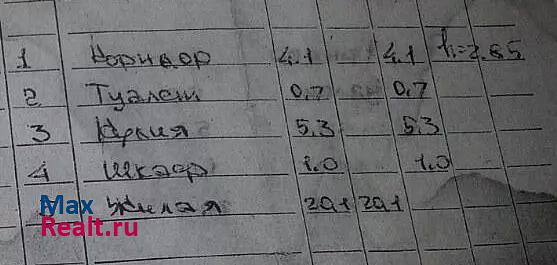 1 Коридор 4.1 4.1 h=2.65
2 Туалет 0,7 0,7
3 Кухня 5,3 5,3
4 шкаф 1.0 1.0
Жилая 20,1 20,1
Max
Realt.ru